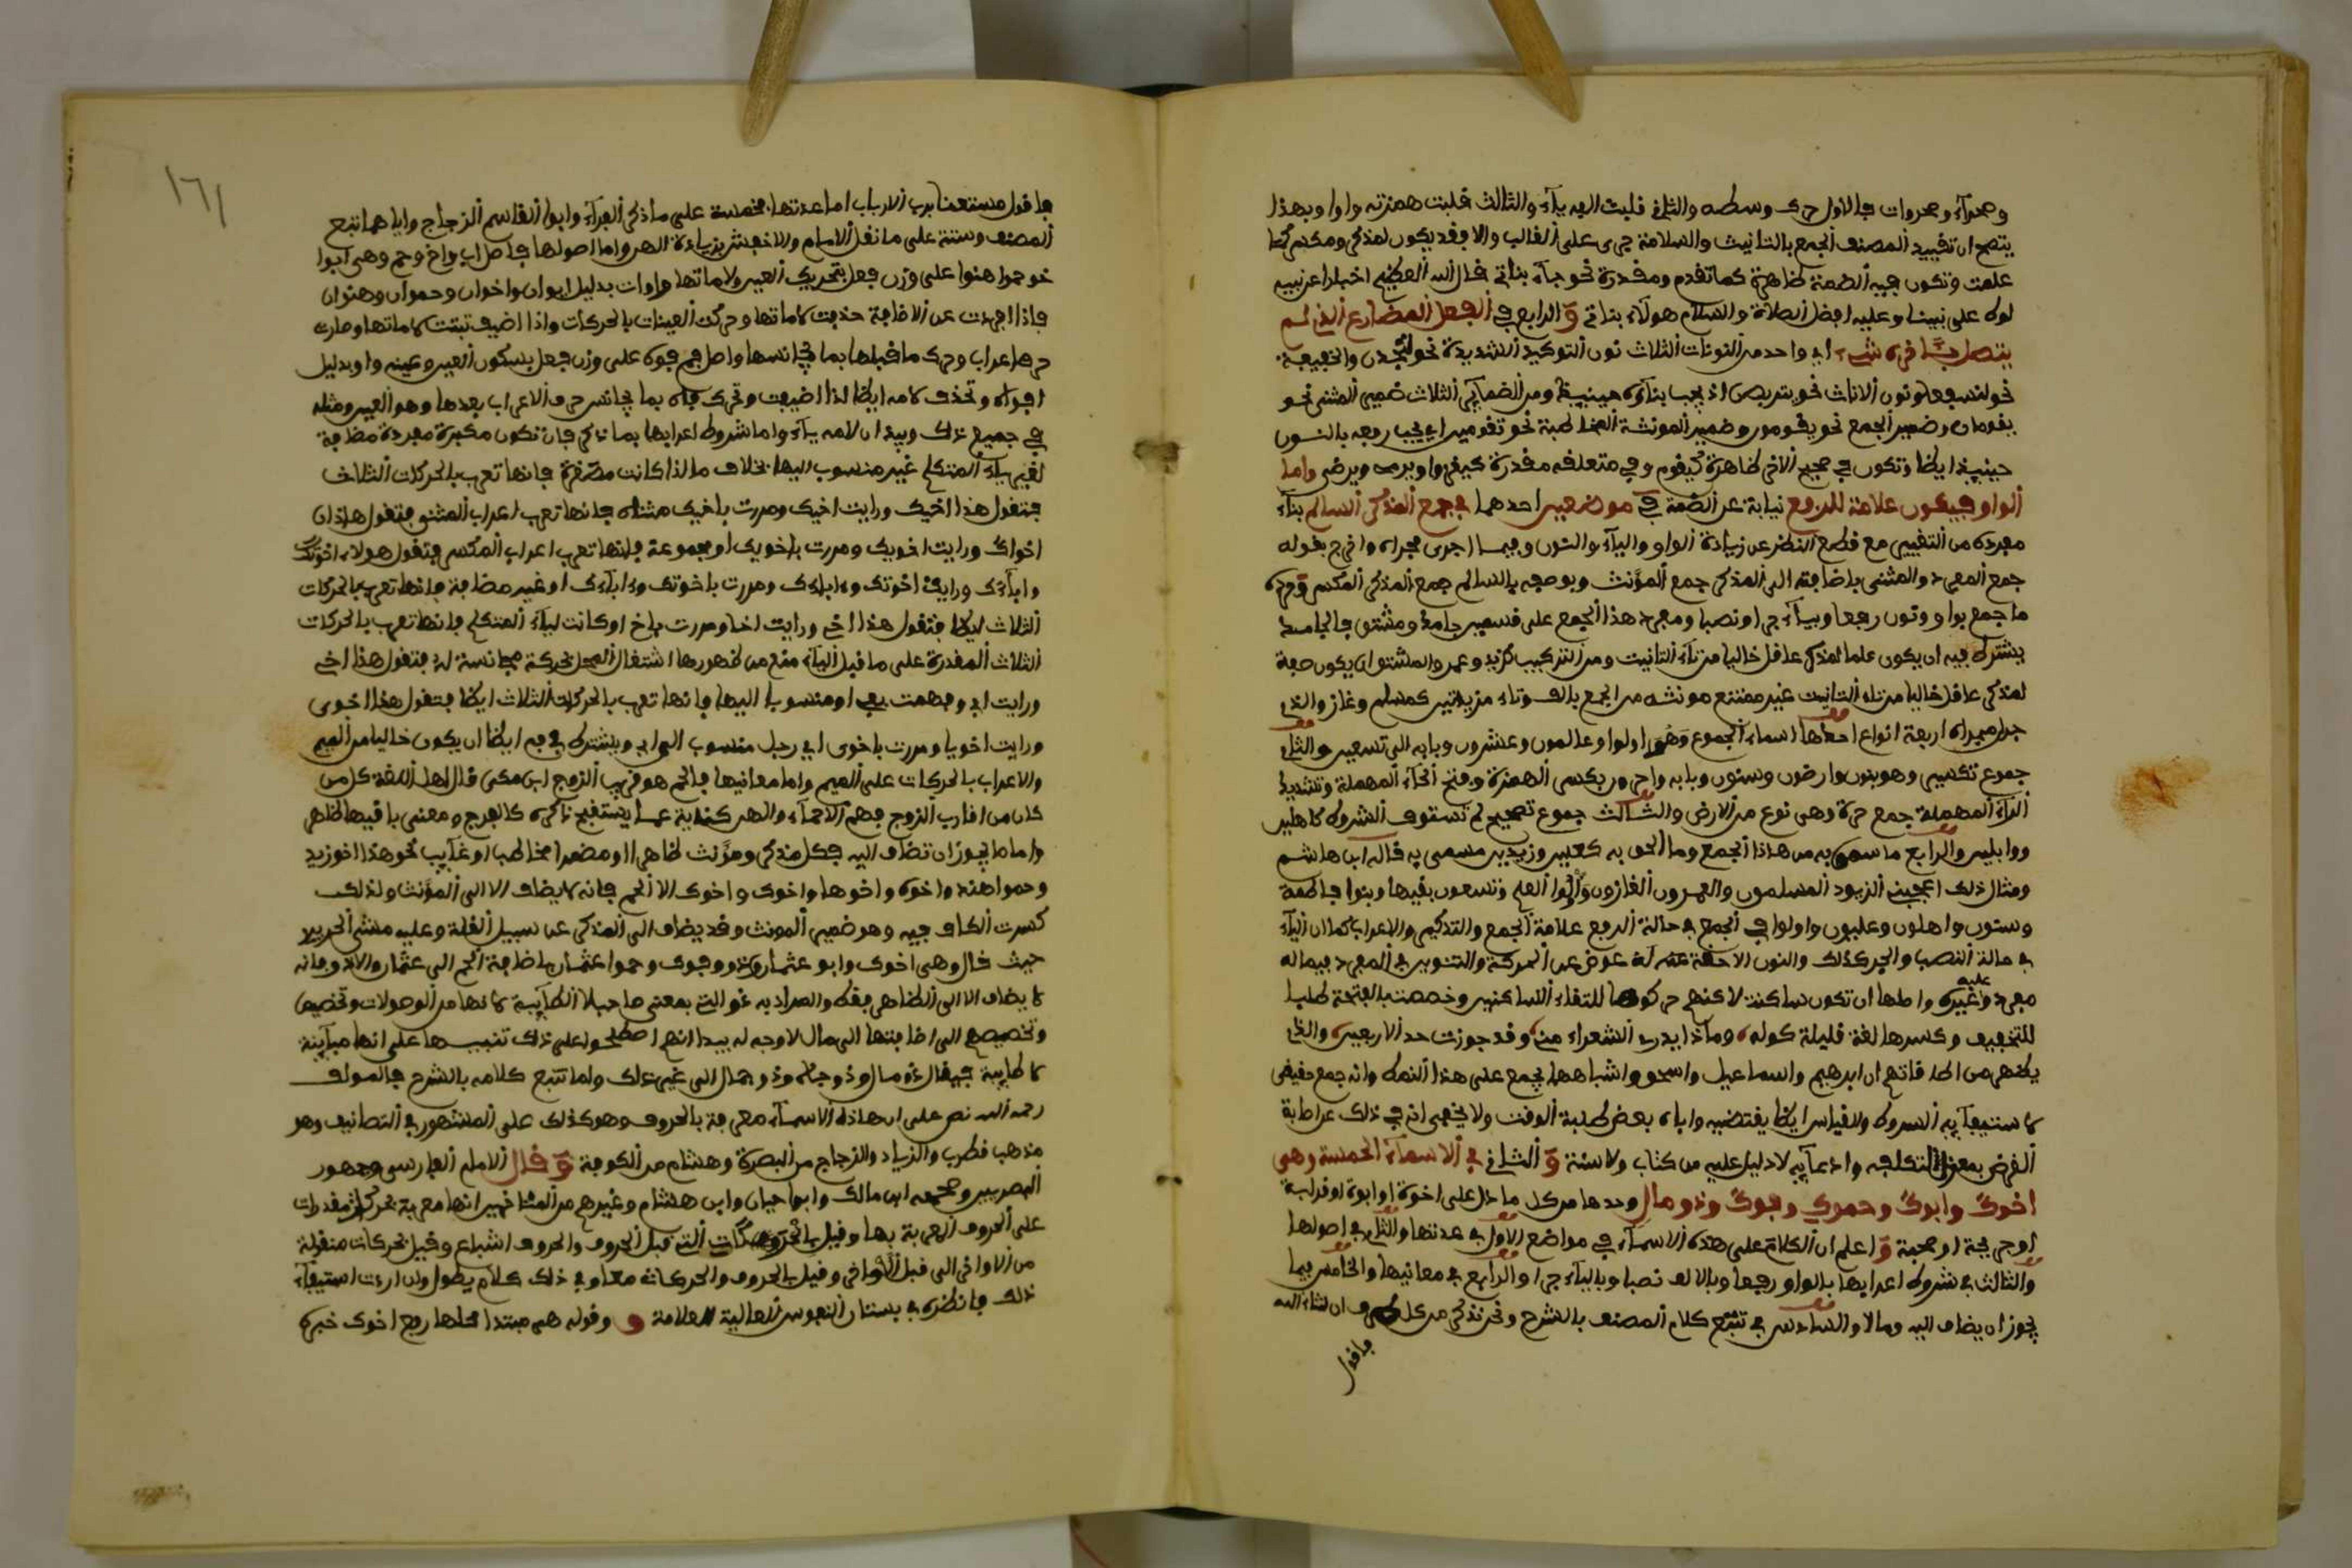 وصحرآء وصحروات فالاول حرك وسطه والثاني قلبت الفه يآء والثالث قلبت همزته واوا وبهذا
يتضح ان تقييد المصنف الجمع بالتانيث والسلامة جرى على الغالب والا فقد يكون لمذكر ومكسر كما
علمت وتكون فيه الضمة ظاهرة كما تقدم ومقدرة نحو جآء بناتي قال الله العظيم اخبارا عن نبيه
لوط على نبينا وعليه افضل الصلاة والسلام هولآء بناتي و الرابع في الفعل المضارع الذي لم
يتصل بـاخره شيء اي واحد من النونات الثلاث نون التوكيد الشديدة نحو ليسجنن والخفيفة
نحو لنسفعا ونون الاناث نحو يتربصن اذ يجب بناؤه حينيذ ومن الضمآير الثلاث ضمير المثنى نحو
يقومان وضمير الجمع نحو يقومون وضمير المونثة المخاطبة نحو تقومين اي يجب رفعه بالنون
حينيذ ايضا وتكون في صحيح الاخر ظاهرة كيقوم وفي متعلقه مقدرة كيغزوا ويرمى ويرضى واما
الواو فيكون علامة للرفع نيابة عن الضمة في موضعين احدهما في جمع المذكر السالم بنآء
مفرده من التغيير مع قطع النظر عن زيادة الواو واليآء والنون وفيما اجرى مجراه واخرج بقوله
جمع المفرد والمثنى باضافته الى المذكر جمع المؤنث وبوصفه بالسالم جمع المذكر المكسر وحده
ما جمع بواو ونون رفعا وبيآء جرا ونصبا ومفرد هذا الجمع على قسمين جامد ومشتق فالجامد
يشترط فيه ان يكون علما لمذكر عاقل خاليا من تآء التانيث ومن التركيب كزيد وعمرو والمشتق ان يكون صفة
لمذكر عاقل خاليا من تاء التانيث غير ممتنع مونثه من الجمع بالف وتاء مزيدتين كمسلم وغاز والذي
جرا مجراه اربعة انواع احداها اسماء الجموع وهو اولوا وعالمون وعشرون وبابه الى تسعين والثاني
جموع تكسير وهو بنون وارضون وسنون وبابه واحرون بكسر الهمزة وفتح الحآء المهملة وتشديد
الرآء المهملة جمع حرة وهى نوع من الارض والثالث جموع تصحيح لم تستوف الشروط كاهلين
ووابلين والرابع ما سمى به من هاذا الجمع وما الحق به كعليين وزيدين مسمى به قاله ابن هاشم
ومثال ذلك اعجبني الزيود المسلمون والعمرون الغازون وألوا العلم وتسعون بقيها وبنوا فاطمة
وسنون واهلون وعليون واولوا في الجمع في حالة الرفع علامة الجمع والتذكير والاعراب كما ان اليآء
في حالة النصب والجر كذلك والنون الاحقة عوض عن الحركة والتنوين في المفرد فيما له
مفرد وغيره عليه واصلها ان تكون ساكنة لاكنهم حركوها للتقاء الساكنين وخصت بالفتحة طلبا
للتخفيف وكسرها لغة قليلة كوله وماذا يدري الشعراء مني وقد جوزت حد الاربعين والذي
يظهر من اطلاقاتهم ان ابرهيم واسماعيل واسحق واشباهها يجمع على هذا النمط وانه جمع حقيقي
لاستيفآيه الشروط والقياس ايضا يقتضيه واباه بعض طلبة الوقت ولا يخفى انه في ذلك عن اصابة
الغرض بمعزل لتكلفه وادعآيه لا دليل عليه من كتاب ولا سنة و الثاني في الاسمآء الخمسة وهى
اخوك وابوك وحموك وفوك وذو مال وحدها من كل ما دل على اخوة او ابوة او قرابة
او جريحة او صحبة و اعلم ان الكلام على هذه الاسمآء في مواضع الاول في عدتها والثاني في اصولها
والثالث في شروط اعرابها بالواو رفعا وبالالف نصبا وباليآء جرا والرابع في معانيها والخامس فيما
يجوز ان يضاف اليه وما لا والسادس في تتبع كلام المصنف بالشرح ونحن نذكر من كل طرف ان شاء الله
فاقول
١٦١
فاقول مستعينا برب الارباب اما عدتها فخمسة على ما ذكر الفرآء وابوا القاسم الزجاج واياهما تبع
المصنف وستة على ما نقل الامام والاخفش بزيادة الهن واما اصولها فاصل اب واخ وحم وهى ابوا
خو حموا هنوا على وزن فعل بتحريك العين ولاماتها واوات بدليل ابوان واخوان وحموان وهنوان
فاذا افردت عن الاضافة حذفت لاماتها وحركت العينات بالحركات واذا اضيف ثبتت لاماتها وصارت
حرف اعراب وحرك ما قبلها بما يجانسها واصل فم فوه على وزن فعل بسكون العين وعينه واو بدليل
افواه وتحذف لامه ايضا اذا اضيفت وتحرك فاه بما يجانس حرف الاعراب بعدها وهو العين ومثله
في جميع ذلك وبيد ان لامه يآء واما شروط اعرابها بما ذكر فان تكون مكبرة مفردة مضافة
لغير يآء المتكلم غير منسوب اليها بخلاف ما اذا كانت مصغرة فانها تعرب بالحركات الثلاث
فتقول هذا اخيك ورايت اخيك ومررت باخيك مثناه فانها تعرب اعراب المثنى فتقول هاذان
اخواك ورايت اخويك ومررت باخويك او مجموعة فانها تعرب اعراب المكسر فتقول هولاء اخوتك
وابآءك ورايت اخوتك وءابآءك ومررت باخوتك وءابآءك او غير مضافة فانها تعرب بالحركات
الثلاث ايضا فتقول هذا اخ ورايت اخا ومررت باخ او كانت ليآء المتكلم فانها تعرب بالحركات
الثلاث المقدرة على ما قبل اليآء منع من ظهورها اشتغال المحل بحركة مجانسة له فتقول هذا اخي
ورايت ابي وفهمت بفي او منسوبا اليها فانها تعرب بالحركات الثلاث ايضا فتقول هذا اخوى
ورايت اخويا ومررت باخوى اي رجل منسوب الى ابي ويشترط في فم ايضا ان يكون خاليا من الميم
والاعراب بالحركات على الميم واما معانيها فالحم هو قريب الزوج ابن مكى قال اهل اللغة كل من
كان من اقارب الزوج فهم الاحمآء والهن كناية عما يستقبح ذكره كالفرج ومعنى باقيها ظاهر
واما ما يجوز ان تضاف اليه فكل مذكر ومؤنث ظاهرا او مضمرا مخاطبا او غآيب نحو هذا اخو زيد
وحموا هند واخوه واخوها واخوى واخوك الا الحم فانه لا يضاف الا الى المؤنث ولذلك
كسرت الكاف فيه وهو ضمير المونث وقد يضاف الى المذكر على سبيل القلة وعليه منشى الحرير
حيث قال وهى اخوك وابو عثمان وفوك وحموا عثمان باضافة الحم الى عثمان والا ذو فانه
لا يضاف الا الى الظاهر فقط والمراد به ذو التي بمعنى صاحب لا الطآيية لانها من الموصولات وتخصيص
وتخصيصهم الى اضافتها الى مال لا وجه له بيد انهم اصطلحوا على ذلك تنبيها على انها مباينة
لا طآيية فيقال ذو مال وذو جاه وذو جمال الى غير ذلك ولما تتبع كلامه بالشرح فالمولف
رحمه الله نص على ان هاذه الاسمآء معربة بالحروف وهو كذلك على المشهور في التصانيف وهو
مذهب قطرب والزياد والزجاج من البصرة وهشام من الكوفة و قال الامام الفارسى وجمهور
البصريين وصححه ابن مالك وابوا حيان وابن هشام وغيرهم من المتاخرين انها معربة بحركات مقدرات
على الحروف المعربة بها وقيل بالحركات التي قبل الحروف والحروف اشباع وقيل بحركات منقولة
من الاواخر الى قبل الاواخر وقيل بالحروف والحركات معا وفي ذلك كلام يطول وان اردت استيفآء
ذلك فانظره في بستان النفوس العالية للعلامة و وقوله هم مبتدا محلها رفع اخوك خبره